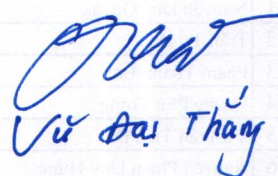 Vũ Đại Thắng